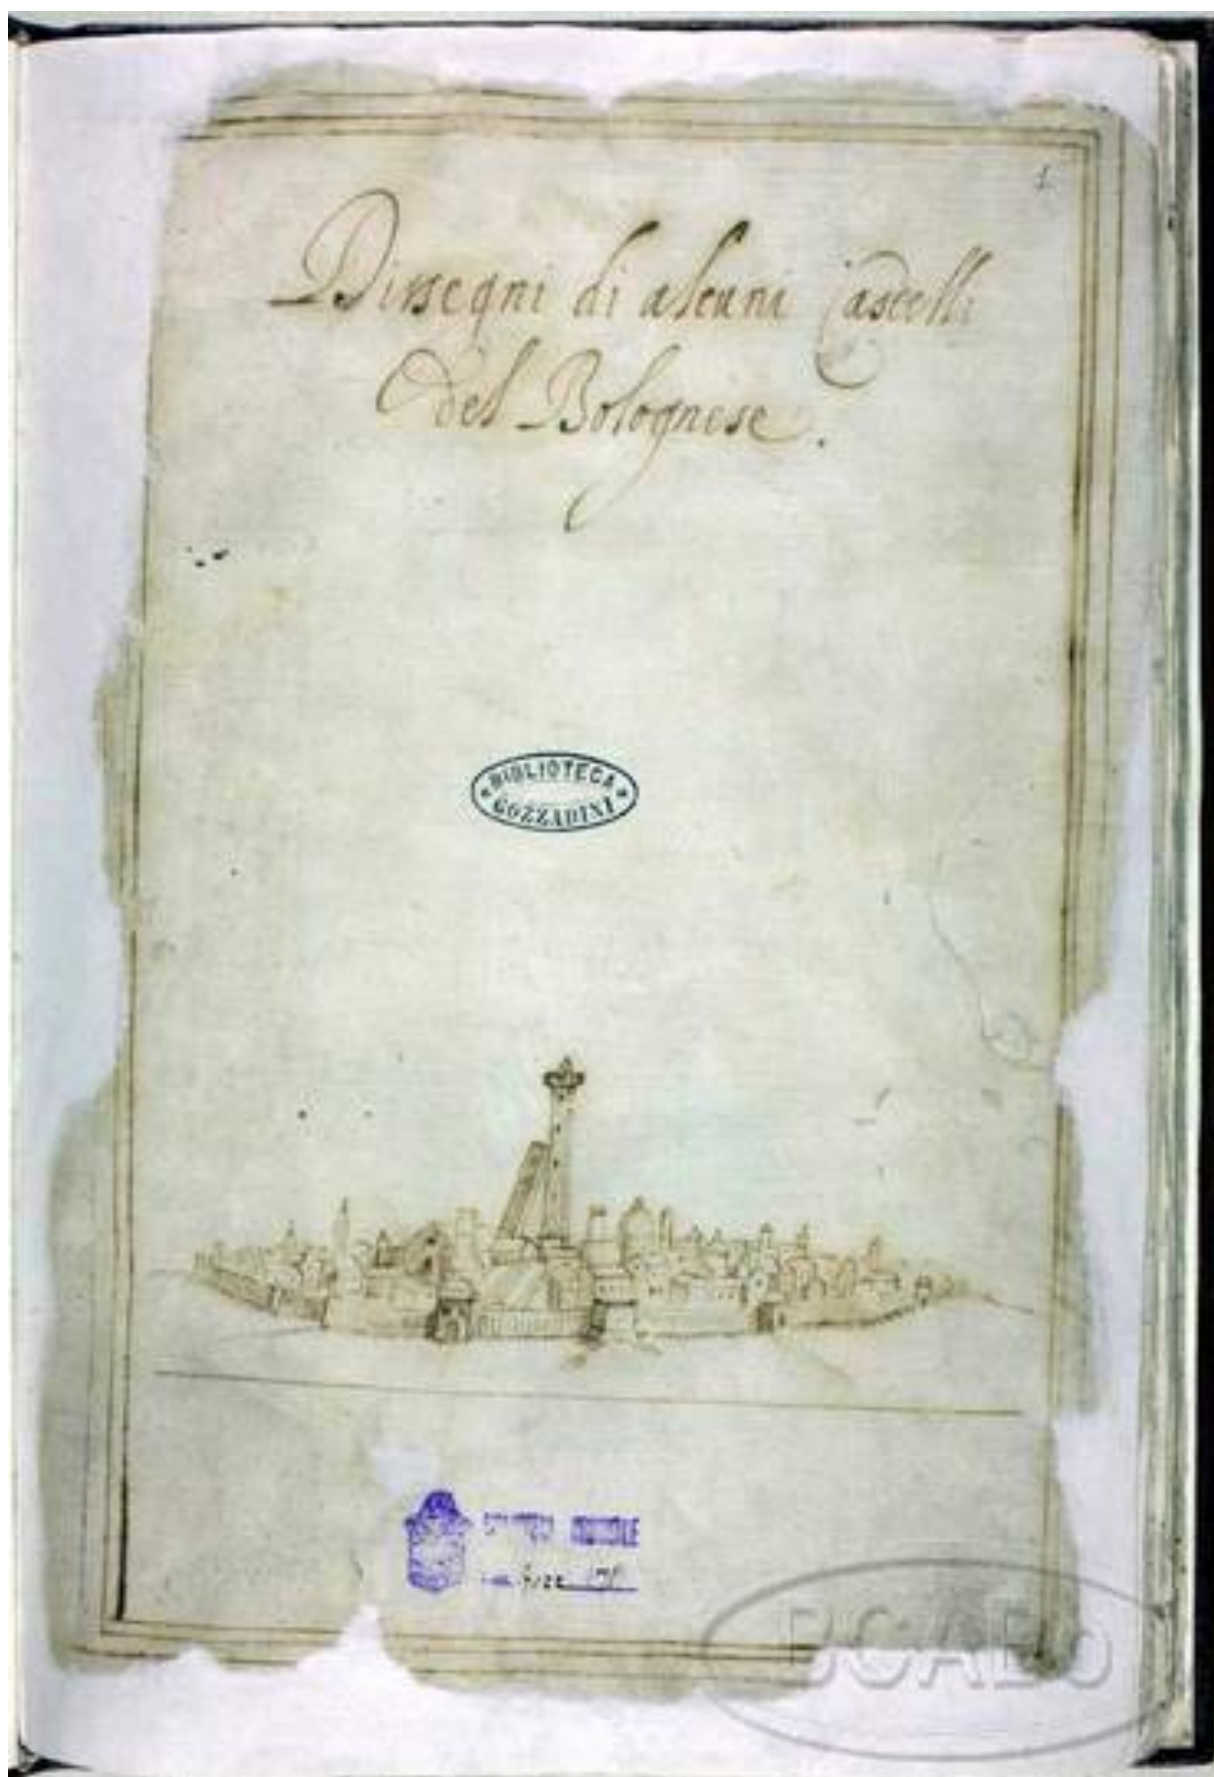 1
Dissegni di alcuni Castelli
del Bolognese.
BIBLIOTECA
GOZZADINI
BCABo